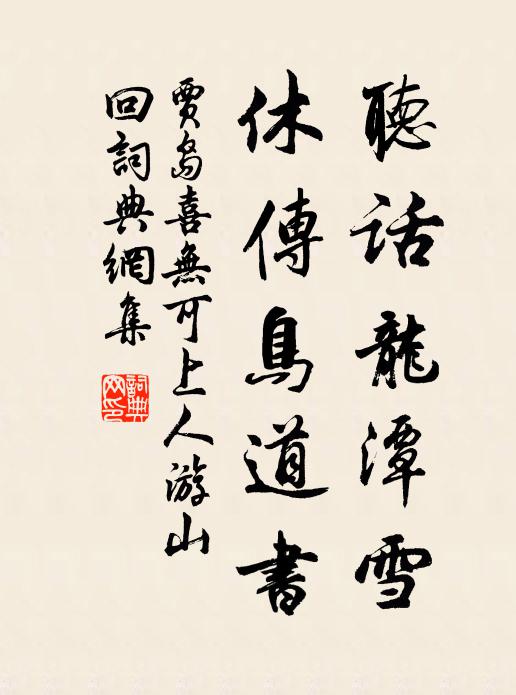 聽話龍潭雪
休傳鳥道書
賈島喜無可上人游山
回詞典網集
詞典
网印